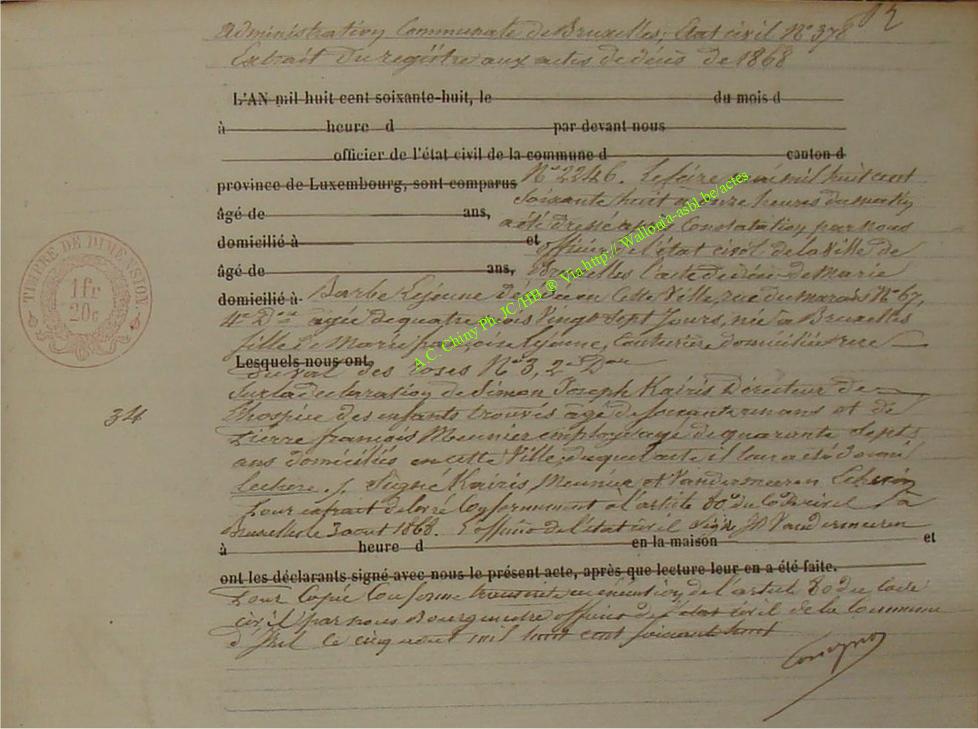 12
Administration Communale de Bruxelles, Etat civil N° 378
Extrait du registre aux actes de décès de 1868
L'AN mil huit cent soixante-huit, le du mois d
à heure d par devant nous
officier de l'état civil de la commune d canton d
province de Luxembourg, sont comparus N° 2246. Le seize mil huit cent
âgé de ans, soixante huit à onze heures du matin
acte dressé après Constatation par nous
domicilié à et officier de l'état civil de la Ville de
âgé de ans, Bruxelles l'acte de décès de Marie
domicilié à Barbe Lejeune décédée en cette Ville, rue du marais N° 67,
4e Don âgée de quatre mois Vingt Sept Jours, née à Bruxelles
fille de Marie françoise Lejeune, Couturière domiciliée rue
Lesquels nous ont,
du Val des roses N° 3, 2e Don
Sur la déclaration de Simon Joseph Kairis Directeur de
l'hospice des enfants trouvés âgé de soixante un ans et de
Pierre françois Meunier employé âgé de quarante Sept
ans domiciliés en cette Ville, duquel acte il leur a été donné
Lecture. Signé Kairis, Meunier et Vandermeeren Echevin
34
Pour extrait delivré Conformement à l'article 80 du Code civil à
Bruxelles le 3 août 1868. L'officier de l'état civil signé Vandermeeren
à heure d en la maison et
ont les déclarants signé avec nous le présent acte, après que lecture leur en a été faite.
Pour Copie Conforme transcrite en exécution de l'article 80 du Code
civil par nous Bourgmestre officier de l'état civil de la Commune
d' le cinq août mil huit cent soixante huit
TIMBRE DE DIMENSION
1 fr
20 c
A.C. Chiny Ph. JC/HB ® Via http://Wallonia-asbl-be/actes